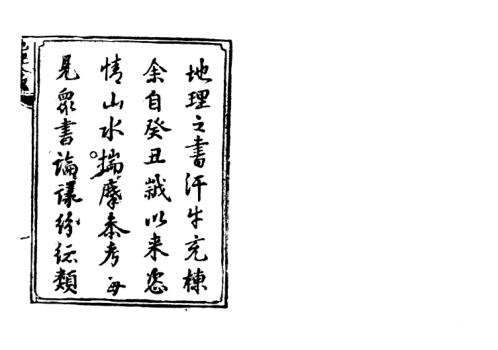 地理之書汗牛充棟
余自癸丑歲以来恣
情山水揣摩叅考每
見衆書論議紛紜類